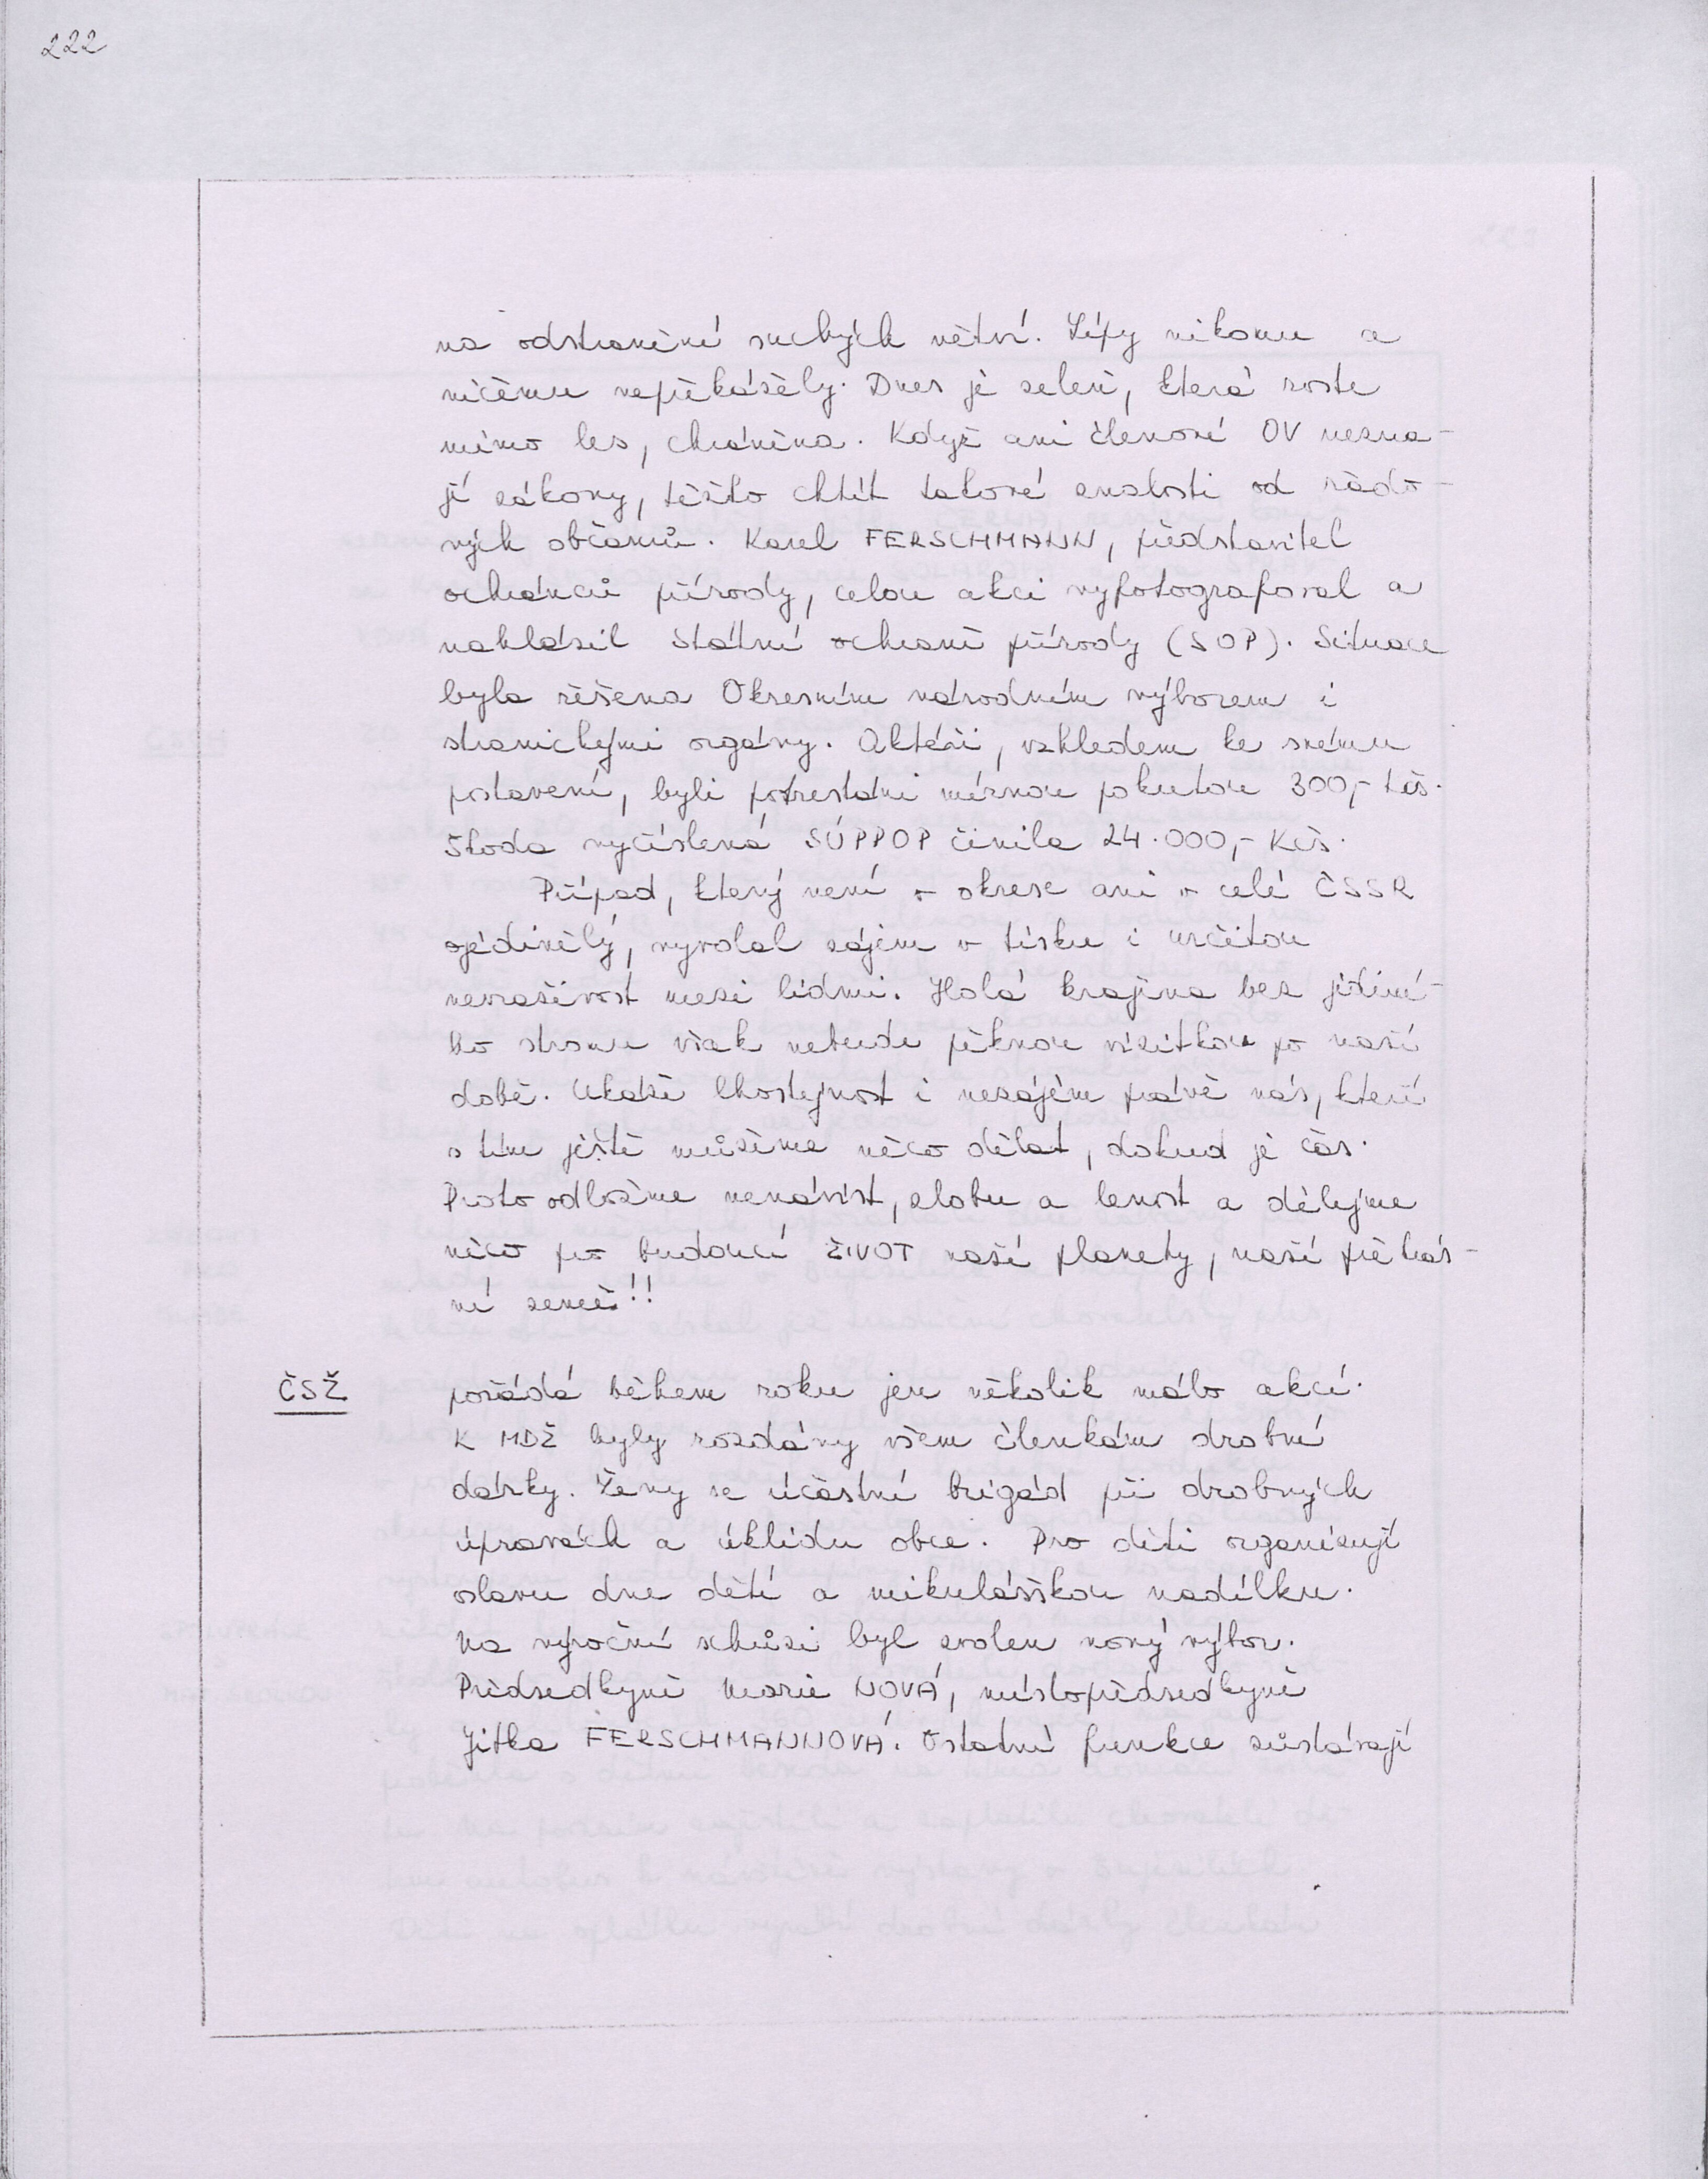 222
na odstranění suchých větví. Lípy nikomu a
ničemu nepřekážely. Dnes je zeleň, která roste
mimo les, chráněna. Když ani členové OV nezna-
jí zákony, těžko chtít takové znalosti od řado-
vých občanů. Karel FERSCHMANN, představitel
ochránců přírody, celou akci vyfotografoval a
nahlásil Státní ochraně přírody (SOP). Situace
byla řešena Okresním národním výborem i
stranickými orgány. Aktéři, vzhledem ke svému
postavení, byli potrestáni mírnou pokutou 300,- Kčs.
Škoda vyčíslená SÚPPOP činila 24.000,- Kčs.
Případ, který není v okrese ani v celé ČSSR
ojedinělý, vyvolal zájem v tisku i určitou
nevraživost mezi lidmi. Holá krajina bez jediné-
ho stromu však nebude pěknou vizitkou po naší
době. Ukáže lhostejnost i nezájem právě nás, kteří
s tím ještě můžeme něco dělat, dokud je čas.
Proto odložme nenávist, zlobu a lenost a dělejme
něco pro budoucí ŽIVOT naší planety, naší překrás-
né země!!
ČSŽ pořádá během roku jen několik málo akcí.
K MDŽ byly rozdány všem členkám drobné
dárky. Ženy se účastní brigád při drobných
úpravách a úklidu obce. Pro děti organizují
oslavu dne dětí a mikulášskou nadílku.
Na výroční schůzi byl zvolen nový výbor.
Předsedkyně Marie NOVÁ, místopředsedkyně
Jitka FERSCHMANNOVÁ. Ostatní funkce zůstávají